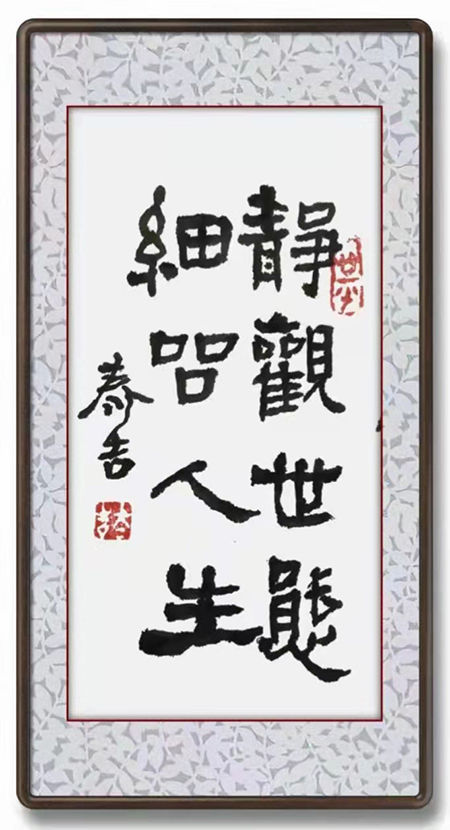 靜觀世態
細品人生
春吉